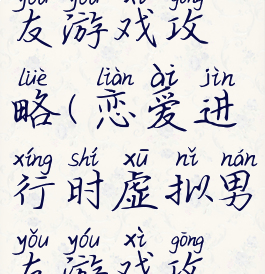 yǒu yóu xì gōng
友游戏攻
lüè liàn ài jìn
略(恋爱进
xíng shí xū nǐ nán
行时虚拟男
yǒu yóu xì gōng
友游戏攻